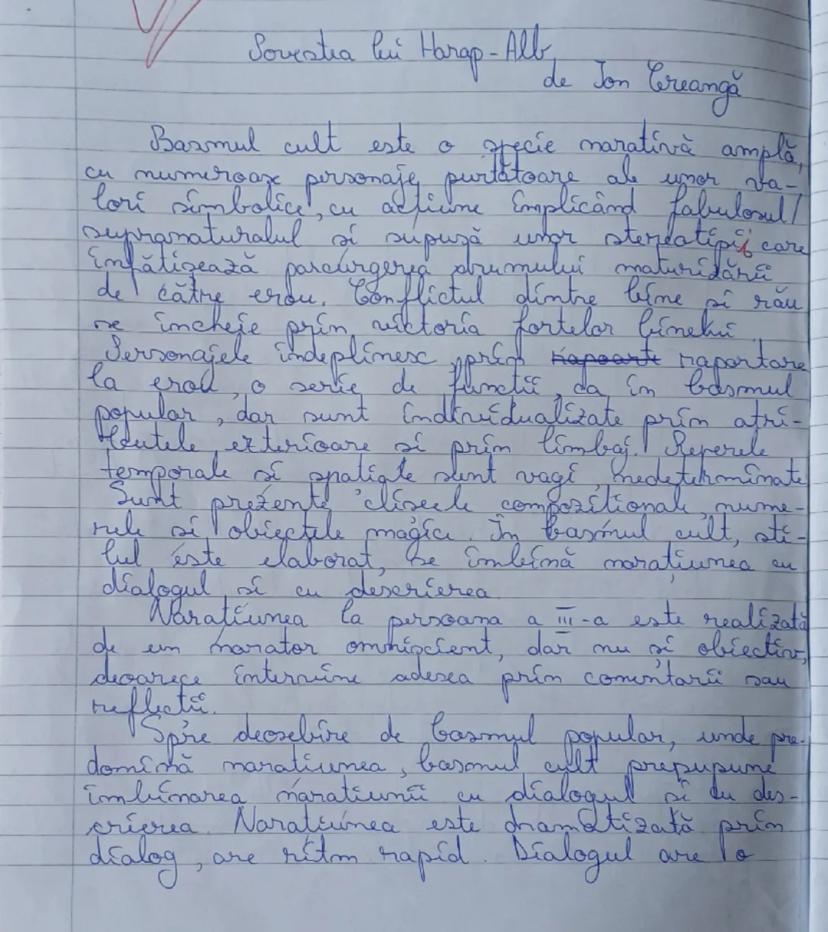 Povestea lui Harap-Alb
de Ion Creangă
Basmul cult este o specie narativă amplă,
cu numeroase personaje purtătoare ale unor va-
lori simbolice, cu acțiune implicând fabulosul/
supranaturalul și supusă unor stereotipii care
înfățișează parcurgerea drumului maturizării
de către erou. Conflictul dintre bine și rău
se încheie prin victoria forțelor binelui.
Personajele îndeplinesc, prin raportare
la erou, o serie de funcții, ca în basmul
popular, dar sunt individualizate prin atri-
butele exterioare și prin limbaj. Reperele
temporale și spațiale sunt vagi, nedeterminate
Sunt prezente clișeele compoziționale, nume-
rele și obiectele magice. În basmul cult, sti-
lul este elaborat, se îmbină narațiunea cu
dialogul și cu descrierea
Narațiunea la persoana a III-a este realizată
de un narator omniscient, dar nu și obiectiv,
deoarece intervine adesea prin comentarii sau
reflecții.
Spre deosebire de basmul popular, unde pre-
domină narațiunea, basmul cult presupune
îmbinarea narațiunii cu dialogul și cu des-
crierea. Narațiunea este dramatizată prin
dialog, are ritm rapid. Dialogul are o